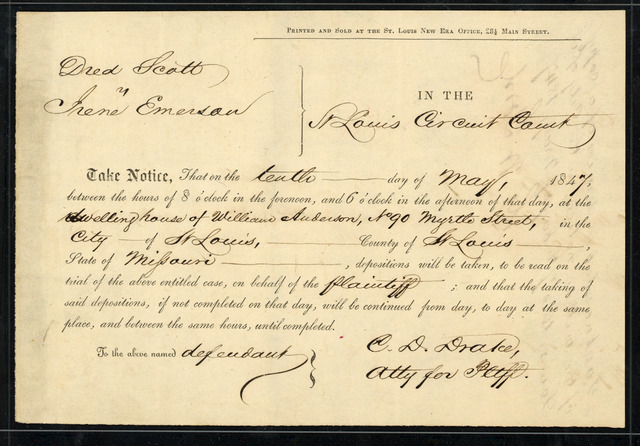 PRINTED AND SOLD AT THE ST. LOUIS NEW ERA OFFICE, 28½ MAIN STREET.
Dred Scott
vs
Irene Emerson
IN THE
St Louis Circuit Court
Take Notice, That on the tenth day of May, 1847,
between the hours of 8 o'clock in the forenoon, and 6 o'clock in the afternoon of that day, at the
dwelling house of William Anderson, No 90 Myrtle Street, in the
City of St Louis, County of St Louis,
State of Missouri, depositions will be taken, to be read on the
trial of the above entitled case, on behalf of the plaintiff ; and that the taking of
said depositions, if not completed on that day, will be continued from day, to day at the same
place, and between the same hours, until completed.
To the above named defendant
C. D. Drake,
Atty for Plff.